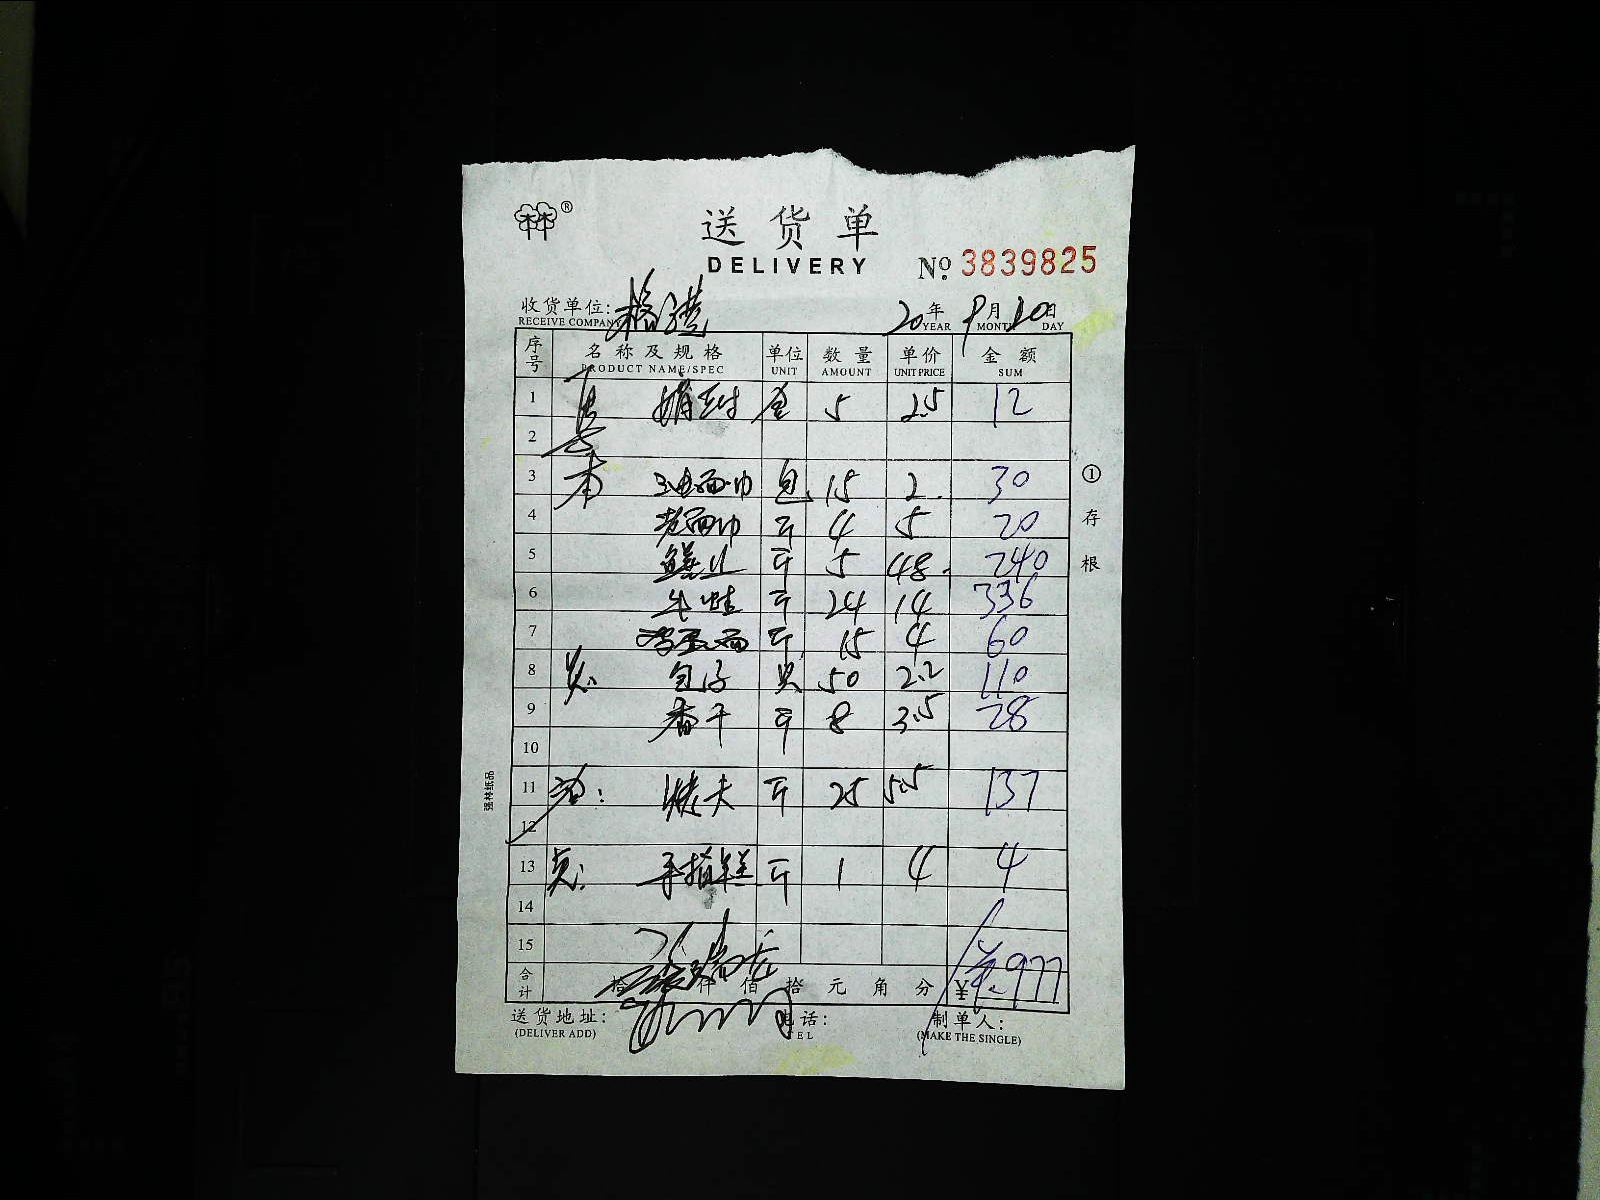 林®
送货单
DELIVERY
№ 3839825
收货单位: 20年 9月 20日
RECEIVE COMPANY YEAR MONTH DAY
序号 名称及规格 单位 数量 单价 金额
PRODUCT NAME/SPEC UNIT AMOUNT UNIT PRICE SUM
1 5 2.5 12
2
3 包 15 2 30
4 斤 4 5 20
5 斤 5 48 240
6 牛蛙 斤 24 14 336
7 斤 15 4 60
8 包子 只 50 2.2 110
9 香干 斤 8 3.5 28
10
11 烤夫 斤 25 5.5 137
12
13 手指糕 斤 1 4 4
14
15
合计 拾 仟 佰 拾 元 角 分 ¥ 977
送货地址: 电话: 制单人:
(DELIVER ADD) TEL (MAKE THE SINGLE)
①存根
强林纸品